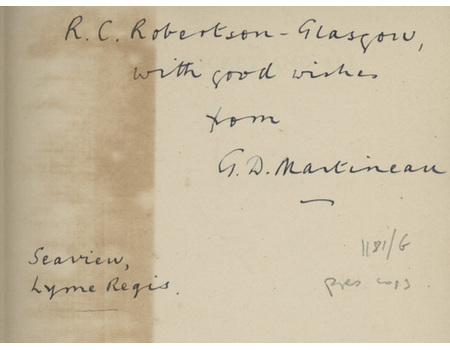 R. C. Robertson-Glasgow,
with good wishes
from
G. D. Martineau
1181/G
Seaview,
Lyme Regis.
pres copy